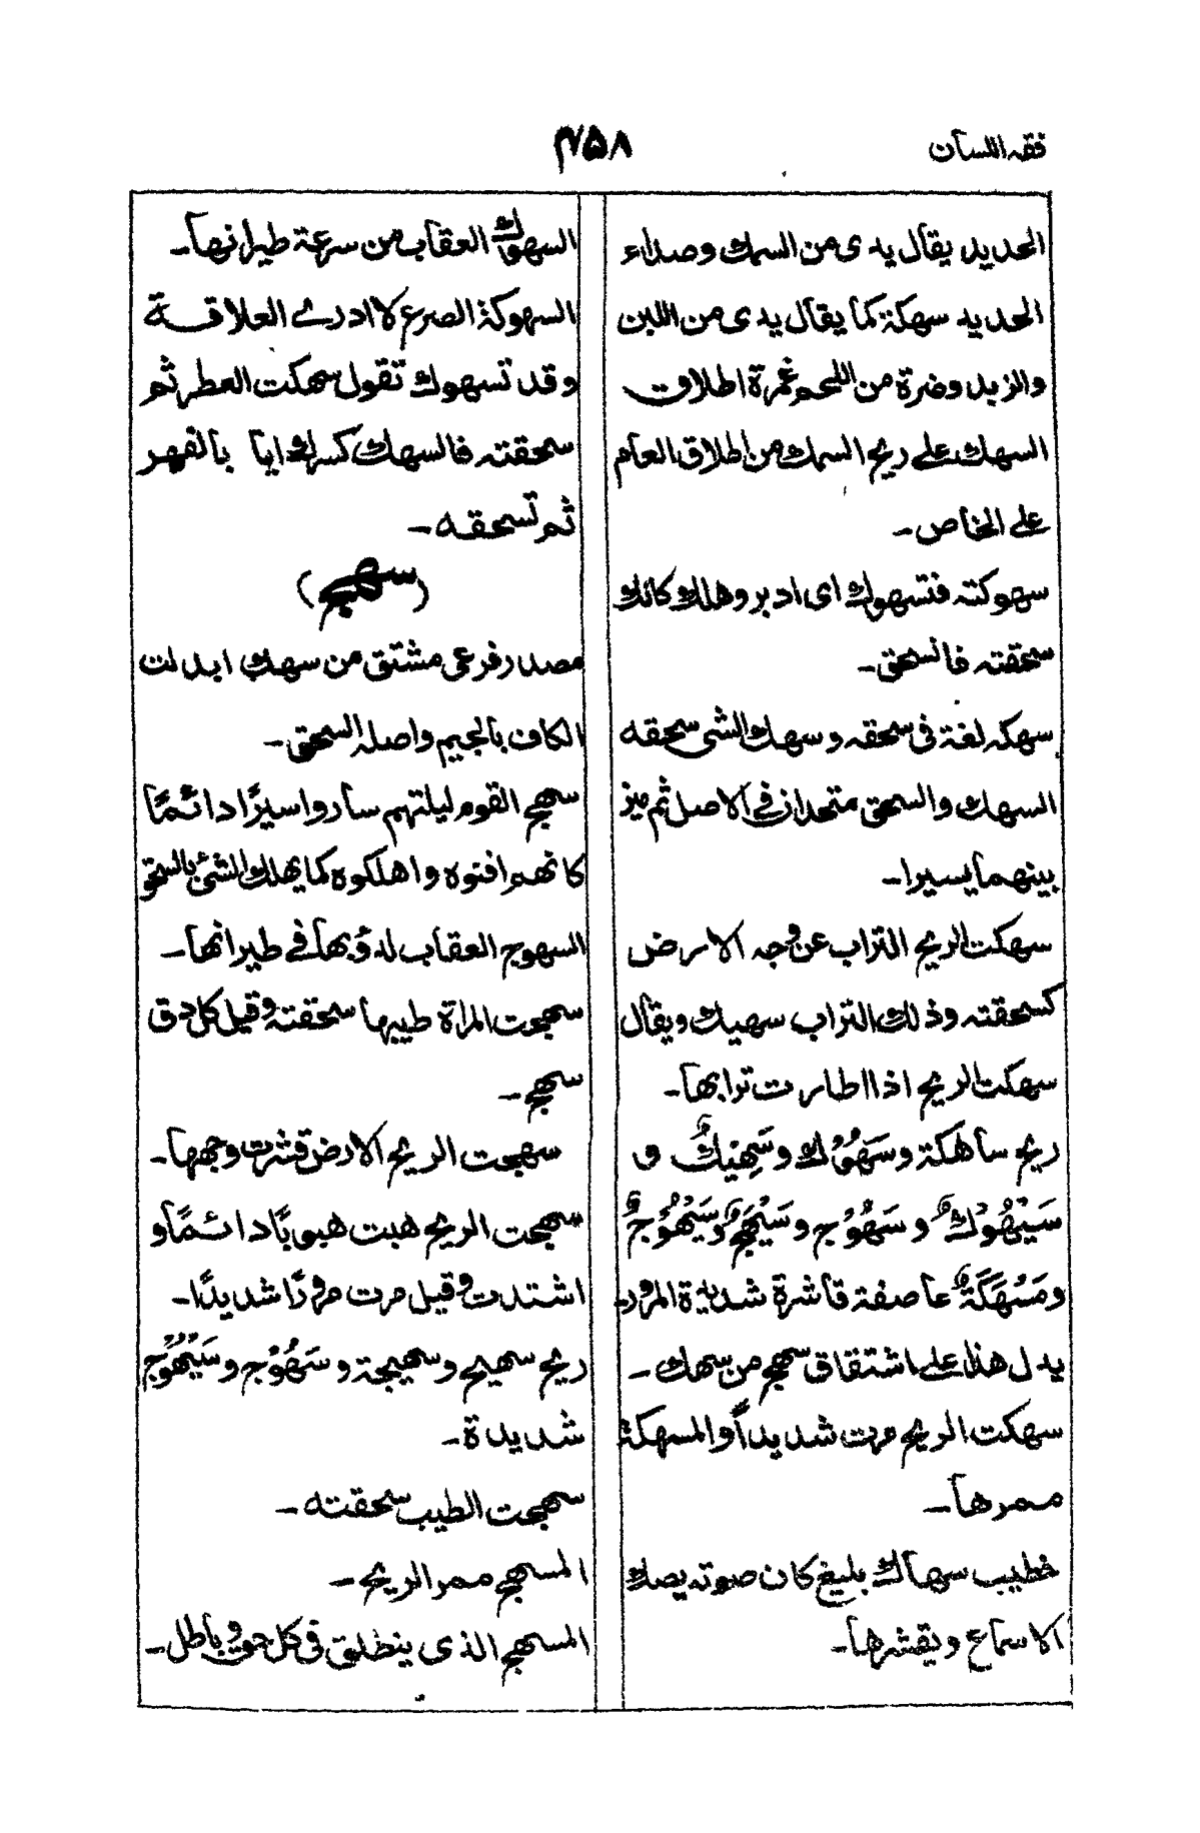 فقہ اللسان
۴۵۸
الحديد يقال يدى من السمك وصداء
الحديد سهكة كما يقال يدى من اللبن
والزبد وضرة من اللحم غمرة اطلاق
السهك على ريح السمك من اطلاق العام
على الخاص۔
سهوكته فتسهوك اى ادبر وهلك كانك
سحقته فانسحق۔
سهكه لغة فى سحقه وسهك الشى سحقه
السهك والسحق متحدان فى الاصل ثم ميز
بينهما يسيرا۔
سهكت الريح التراب عن وجه الارض
كسحقته وذلك التراب سهيك ويقال
سهكت الريح اذا اطارت ترابها۔
ريح ساهكة وسَهُوْك وسَهِيْكٌ و
سَيْهُوْكٌ وسَهُوْج وسَيْهَجٌ وسَيْهُوْجٌ
ومَسْهَكَةٌ عاصفة قاشرة شديدة المرور
يدل هذا على اشتقاق سهج من سهك۔
سهكت الريح مرت شديداً والمسهكة
ممرها۔
خطيب سهاك بليغ كان صوته يصك
الاسماع ويقشرها۔
السهوك العقاب من سرعة طيرانها۔
السهوكة الصرع لا ادرى العلاقة
وقد تسهوك تقول سهكت العطر ثم
سحقته فالسهك كسرك ايا بالفهر
ثم تسحقه۔
(سهج)
مصدر فرعى مشتق من سهك ابدلت
الكاف بالجيم واصله السحق۔
سهج القوم ليلتهم ساروا سيرًا دائمًا
كانهم افنوه واهلكوه كما يهلك الشئ بالسحق
السهوج العقاب لدؤبها فى طيرانها۔
سهجت المراة طيبها سحقته وقيل كل دق
سهج۔
سهجت الريح الارض قشرت وجهها۔
سهجت الريح هبت هبوبًا دائمًا و
اشتدت وقيل مرت مرورًا شديدًا۔
ريح سهيج وسهيجة وسَهُوْج وسَيْهُوْج
شديدة۔
سهجت الطيب سحقته۔
المسهج ممر الريح۔
المسهج الذى ينطلق فى كل حق وباطل۔